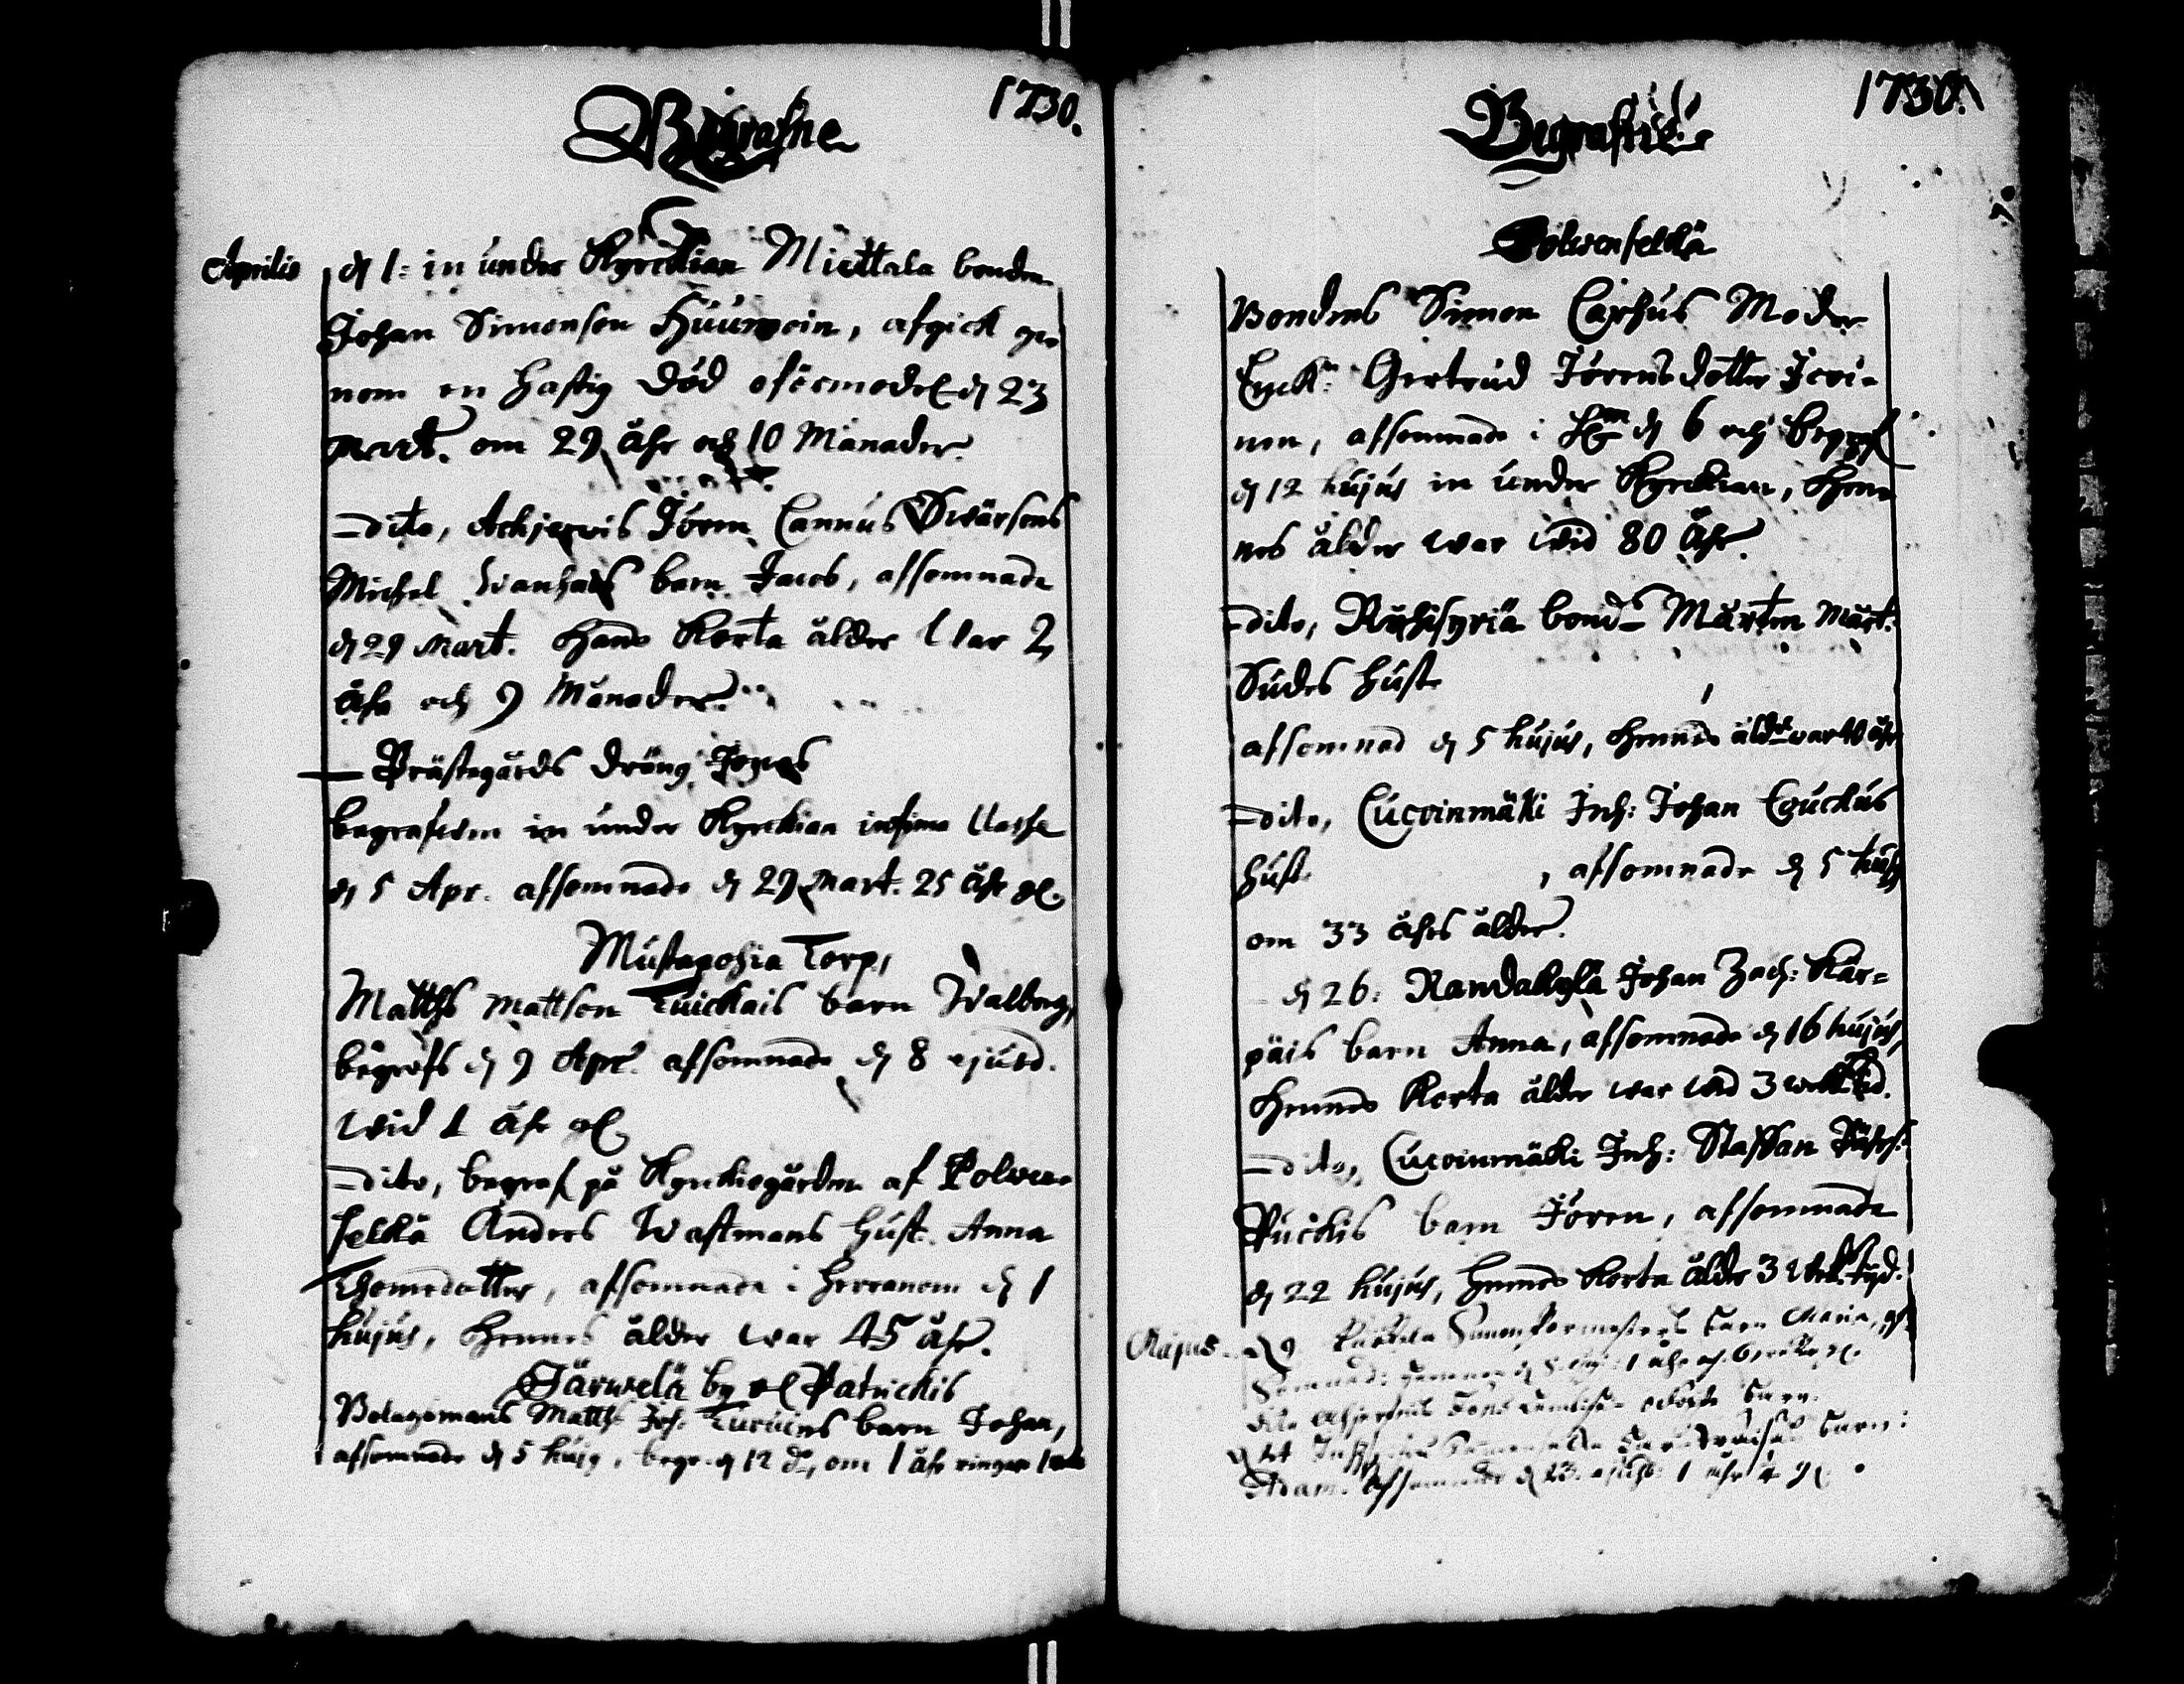 Begrafne 1730.
Aprilis d 1: in under Kyrckian Miettala bonden
Johan Simonson Huuwoin, afgick ge-
nom en hastig död oförmodel d 23
Mart. om 29 åhr och 10 Månader.
dito, Achjerwis Jören Cannus Swärsons
Michel Wanhais barn Jacob, afsomnade
d 29 Mart. Hans korta ålder war 2
åhr och 9 Månader.
Prästegårds dräng Jonas
begrafwen in under Kyrckian infima Classe
d 5 Apr. afsomnade d 29 Mart. 25 åhr gl.
Mustapohia Torp,
Matths Mattson Tuickais barn Walborg,
begrofs d 9 Apr. afsomnade d 8 ejusd.
wid 1 åhr gl
dito, begraf på Kyrckiogården af Polwen-
selkä Anders Wästmans hust. Anna
Thomedotter, afsomnade i Herranom d 1
hujus, Hennes ålder war 45 åhr.
Järwelä by gl Patrickis
Bolagzmans Matth Joh: Turuins barn Johan,
afsomnade d 5 hujg, begr. d 12 do, om 1 åhr ringare 1
Begrafne 1730.
Polwenselkä
Bondens Simon Carhus Moder
Enck. Gertrud Jörensdotter Icoi-
nen, afsomnade i Hm d 6 och begraf
d 12 hujus in under Kyrckian, Hen-
nes ålder war wid 80 Åhr.
dito, Ruhisyriä bond Mårten Mårt:
Sudes hust
afsomnad d 5 hujus, Hennes ålder war 40 åhr
dito, Cucoinmäki Inh: Johan Couckus
hust. , afsomnade d 5 hujg
om 33 åhrs ålder.
d 26: Randakylä Johan Zach: Kär-
päis barn Anna, afsomnade d 16 hujus,
Hennes korta ålder war wid 3 wek: tid.
dito, Cucoinmäki Inh: Staffan Påhls:
Puickis barn Jören, afsomnade
d 22 hujus, Hennes korta ålder 3 Wek: tijd.
Majus d 9 Simon barn Maria, af-
somnad: d 8 1 åhr och 6 gl.
dito Achjerfwis barn
d 24 barn:
Adam. Afsomnade d 23. ejusd: 1 åhr 4 gl.